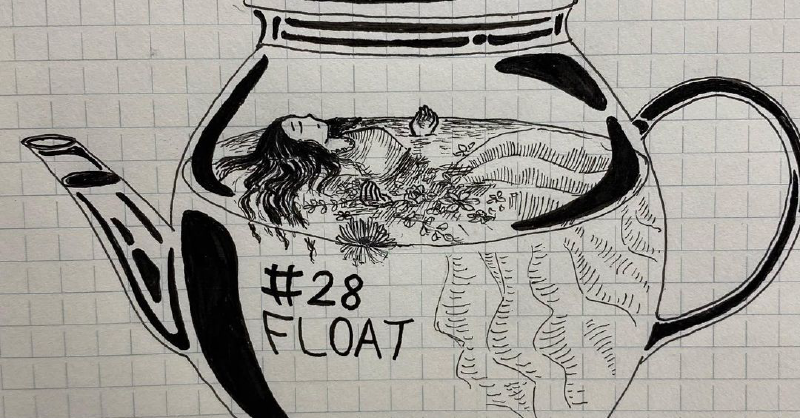 #28
FLOAT